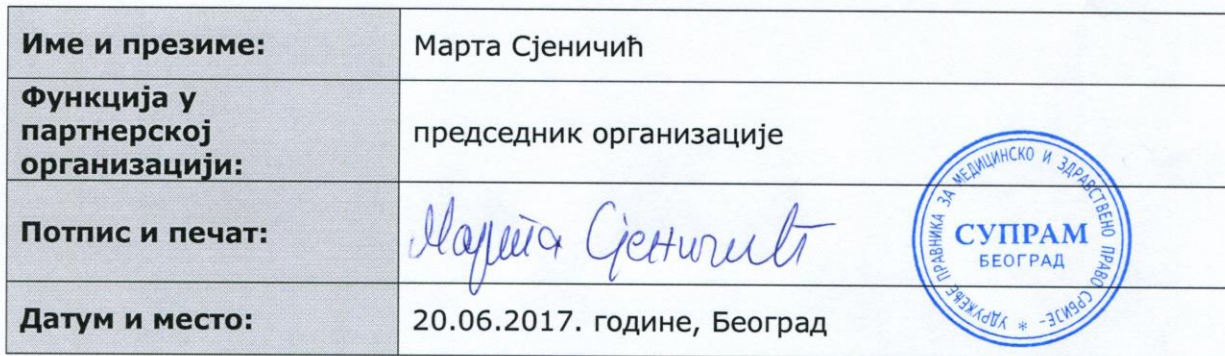 Име и презиме:
Марта Сјеничић
Функција у
партнерској
организацији:
председник организације
Потпис и печат:
Марта Сјеничић
УДРУЖЕЊЕ ПРАВНИКА ЗА МЕДИЦИНСКО И ЗДРАВСТВЕНО ПРАВО СРБИЈЕ - *
СУПРАМ
БЕОГРАД
Датум и место:
20.06.2017. године, Београд